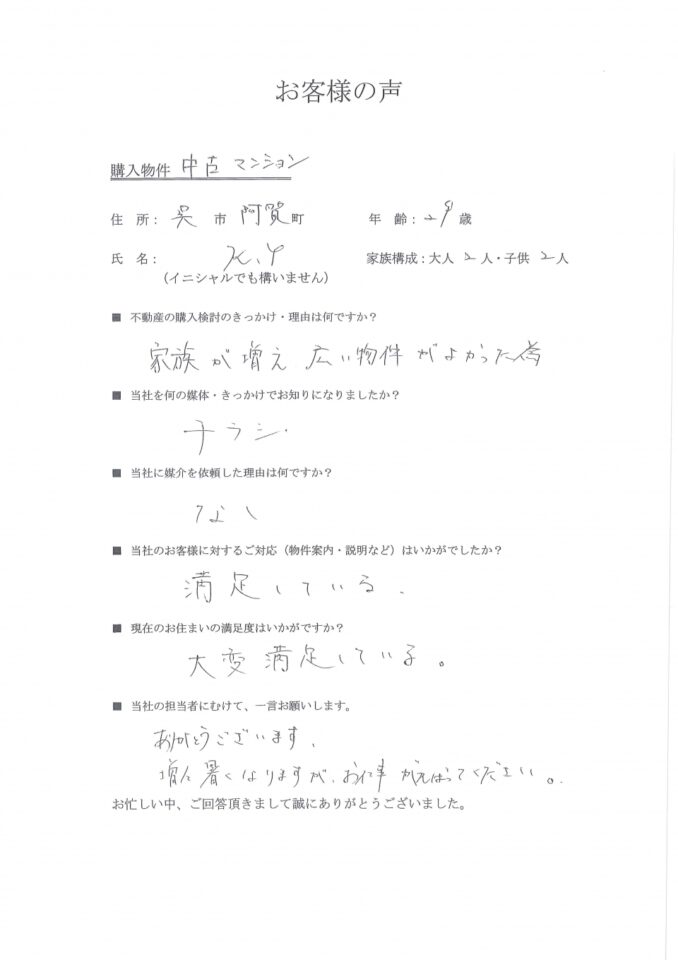 お客様の声
購入物件 中古マンション
住 所： 呉 市 阿賀町 年 齢：29歳
氏 名： K.Y 家族構成：大人 2 人・子供 2 人
（イニシャルでも構いません）
■ 不動産の購入検討のきっかけ・理由は何ですか？
家族が増え 広い物件がよかった為
■ 当社を何の媒体・きっかけでお知りになりましたか？
チラシ.
■ 当社に媒介を依頼した理由は何ですか？
なし
■ 当社のお客様に対するご対応（物件案内・説明など）はいかがでしたか？
満足している.
■ 現在のお住まいの満足度はいかがですか？
大変満足している。
■ 当社の担当者にむけて、一言お願いします。
ありがとうございます.
増々暑くなりますが、お仕事がんばってください。
お忙しい中、ご回答頂きまして誠にありがとうございました。